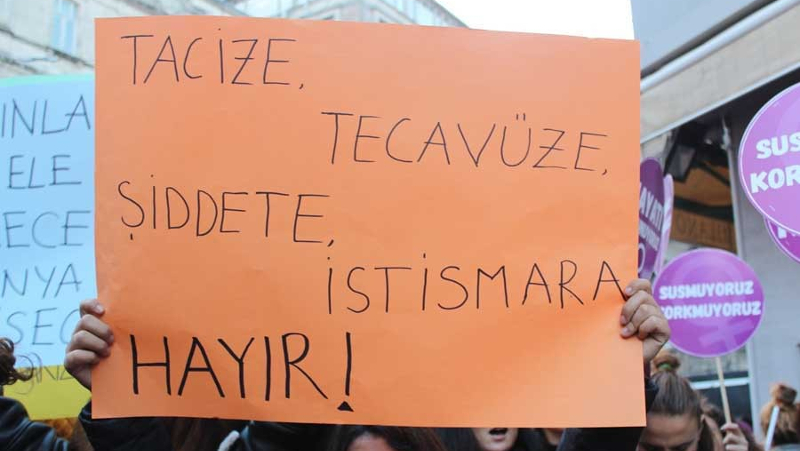 TACİZE,
TECAVÜZE,
ŞİDDETE,
İSTİSMARA
HAYIR!
INLA
ELE
ECE
NYA
SUSMUYORUZ
KORKMUYORUZ
SUS
KOR